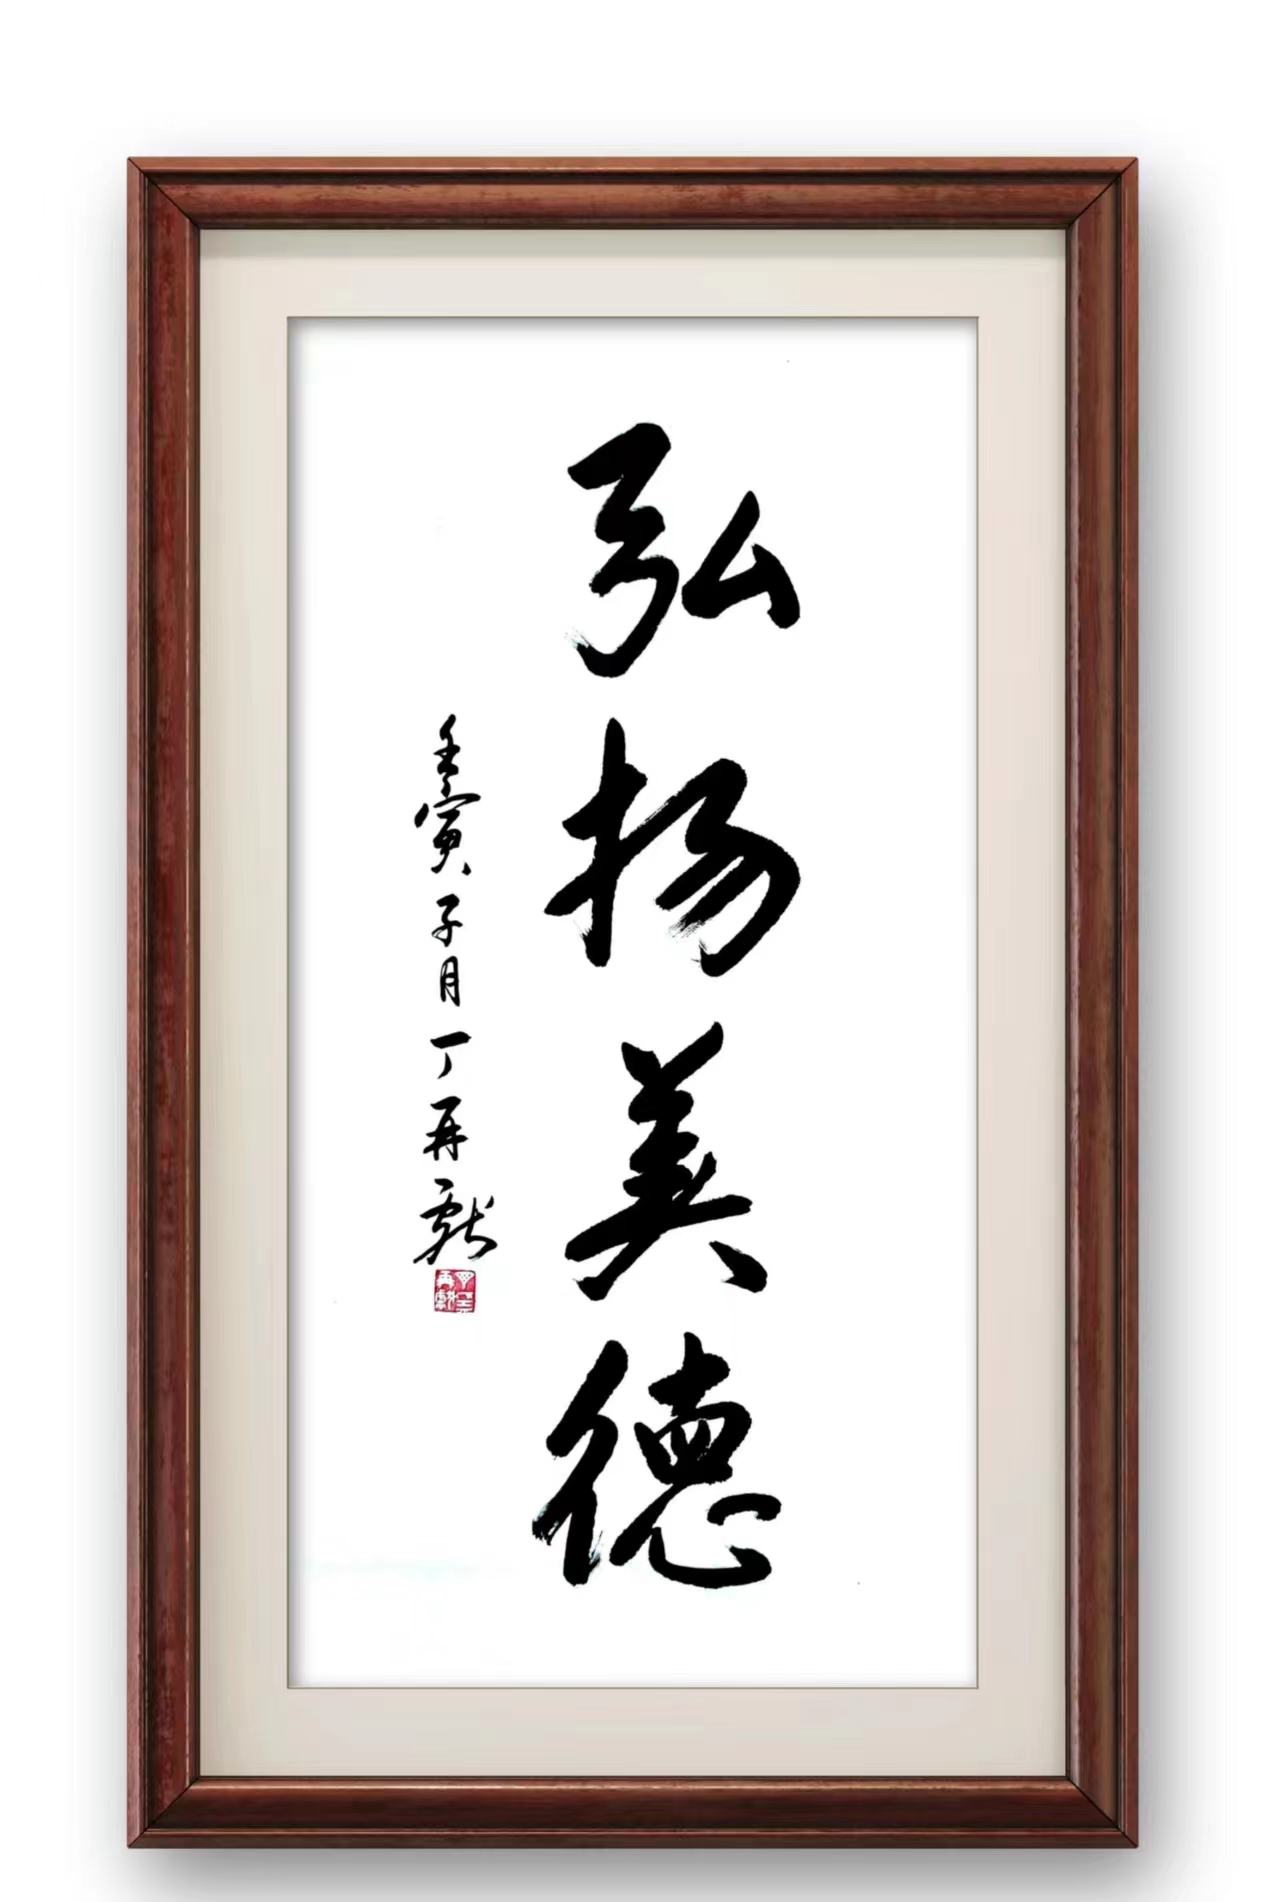 弘扬美德
壬寅子月丁再献